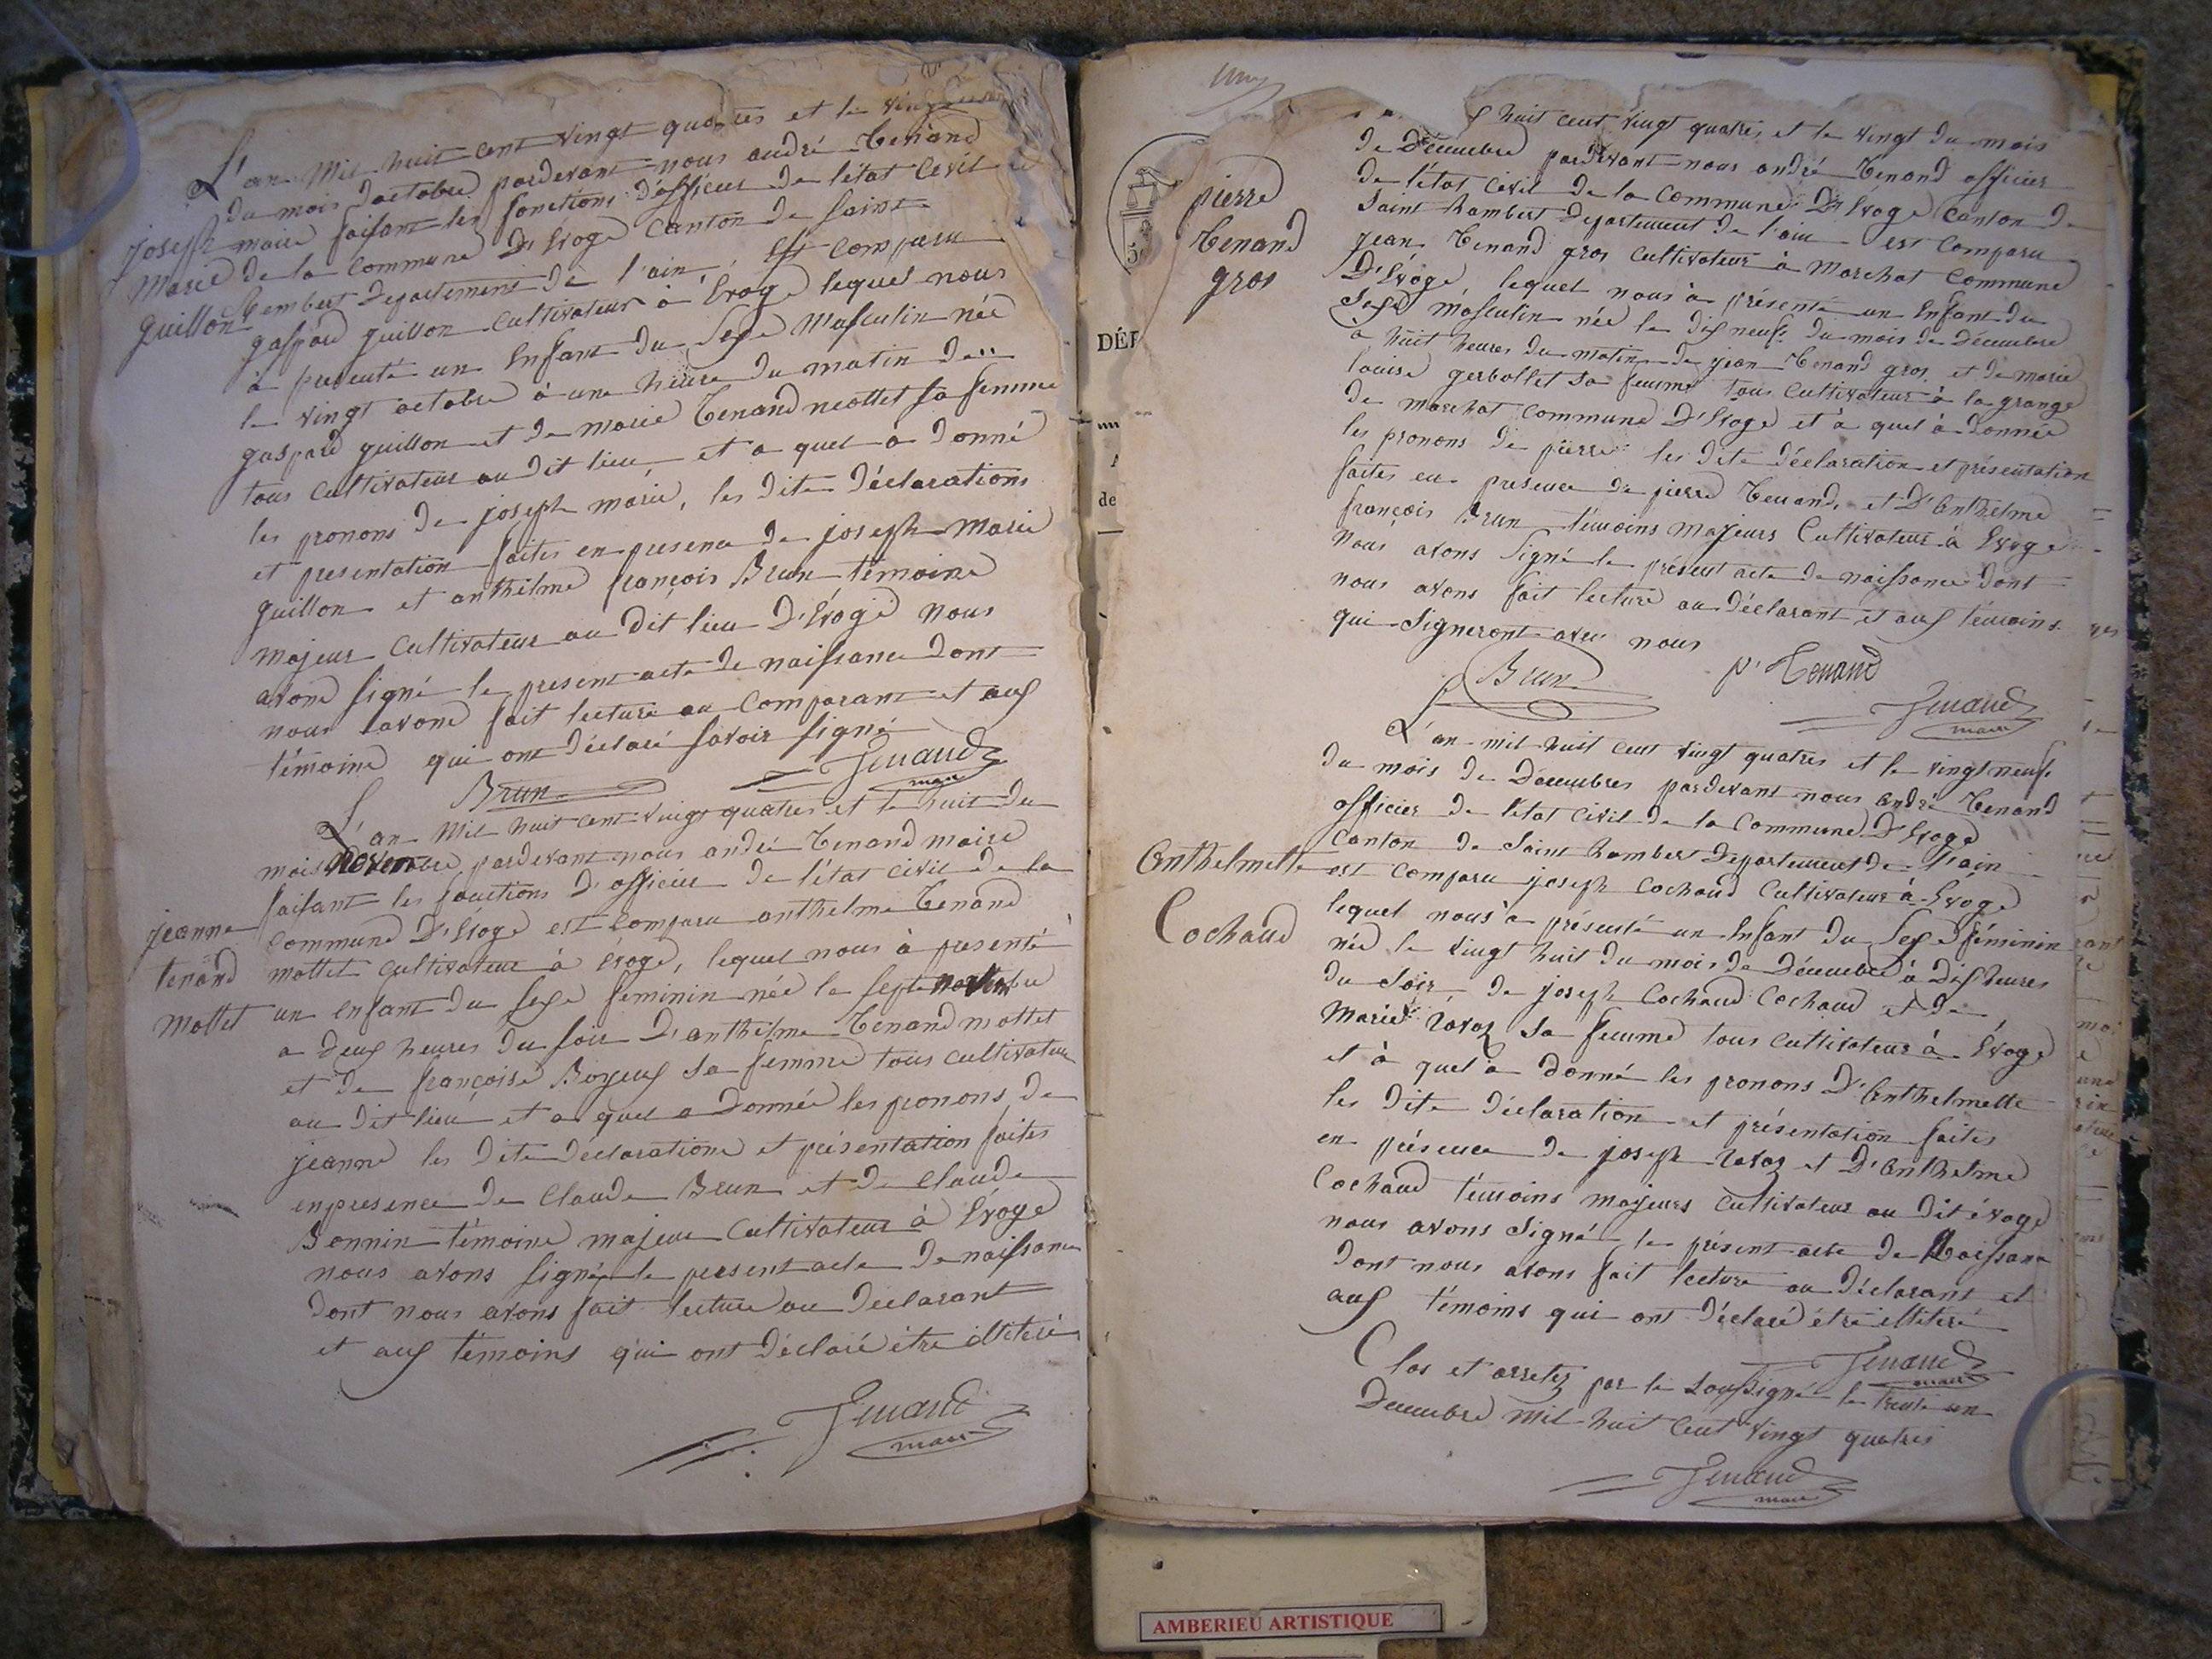 L'an mil huit cent vingt quatres et le vingt
du mois d'octobre pardevant nous andré Tenand
maire faisant les fonctions d'officier de l'état Cevil
de la Commune D'Evoge Canton de saint
Rembert Departement de l'ain, Est Comparu
gaspard guillon Cultivateur à Evoge lequel nous
à presenté un Enfant du Sexe Masculin née
le vingt octobre à une heure du matin de
gaspard guillon et de marie Tenand neottet sa femme
tous Cultivateur au dit lieu et a quel à donné
les pronons de joseph marie, les dite Déclarations
et presentation faites en presence de joseph Marie
guillon et anthelme françois Brun témoins
Majeur Cultivateur au dit lieu D'Evoge Nous
avons signé le present acte de naissance dont
nous avons fait lecture au Comparant et aux
témoins qui ont déclaré savoir signé
Brun Tenand
maire
joseph
Marie
guillon
L'an Mil huit Cent vingt quatres et le huit du
mois Novembre pardevant nous andré Tenand maire
faisant les fonctions D'officier de l'état Civil de la
Commune D'Evoge est Comparu anthelme Tenand
mottet Cultivateur à Evoge, lequel nous à presenté
un enfant du sexe feminin née le sept novembre
a deux heures du soir D'anthelme Tenand mottet
et de françoise Boyeux Sa femme tous Cultivateur
au dit lieu et a quel a donnée les pronons de
jeanne les dite declarations et présentation faites
en presence de Claude Brun et de Claude
Bonnin témoins majeur Cultivateur à Evoge
nous avons signé le present acte de naissance
dont nous avons fait lecture au déclarant
et aux témoins qui ont déclaré être illiteré
Tenand
maire
jeanne
tenand
Mottet
huit cent vingt quatres et le vingt du mois
de Décembre pardevant nous andré Tenand officier
de l'état Civil de la Commune D'Evoge Canton de
Saint Rambert Departement de l'ain est Comparu
jean Tenand gros Cultivateur à Marchat Commune
D'Evoge, lequel nous à présenté un Enfant du
Sexe Masculin née le dix neuf du mois de Décembre
à huit heures du matin de jean Tenand gros et de marie
louise gerbollet sa femme tous Cultivateur à la grange
de marchat Commune D'Evoge et à quel à donnée
les pronons de pierre les dite déclaration et présentation
faites en presence de pierre Tenand, et D'Anthelme
françois Brun témoins majeurs Cultivateur à Evoge
Nous avons signé le présent acte de naissance dont
nous avons fait lecture au déclarant et aux témoins
qui Signeront avec nous
Brun p. Tenand
Tenand
maire
pierre
Tenand
gros
DÉP
de
L'an mil huit cent vingt quatres et le vingt neuf
du mois de Décembres pardevant nous André Tenand
officier de l'état Civil de la Commune D'Evoge
Canton de Saint Rambert Département de l'ain
est comparu joseph Cochaud Cultivateur à Evoge
lequel nous à présenté un Enfant du Sexe féminin
née le vingt huit du mois de Décembre à dix heures
du Soir, de joseph Cochaud Cochaud et de
Marie ravoz Sa femme tous Cultivateur à Evoge
et à quel à donné les pronons D'Anthelmette
les dite déclaration et présentation faites
en présence de joseph ravoz et D'Anthelme
Cochaud témoins majeurs Cultivateur au Dit évoge
nous avons Signé le présent acte de Naissance
dont nous avons fait lecture au déclarant et
aux témoins qui ont déclaré être illiteré
Tenand
maire
Anthelmette
Cochaud
Clos et arretez par le Soussigné le trente un
Decembre mil huit Cent vingt quatres
Tenand
maire
AMBERIEU ARTISTIQUE